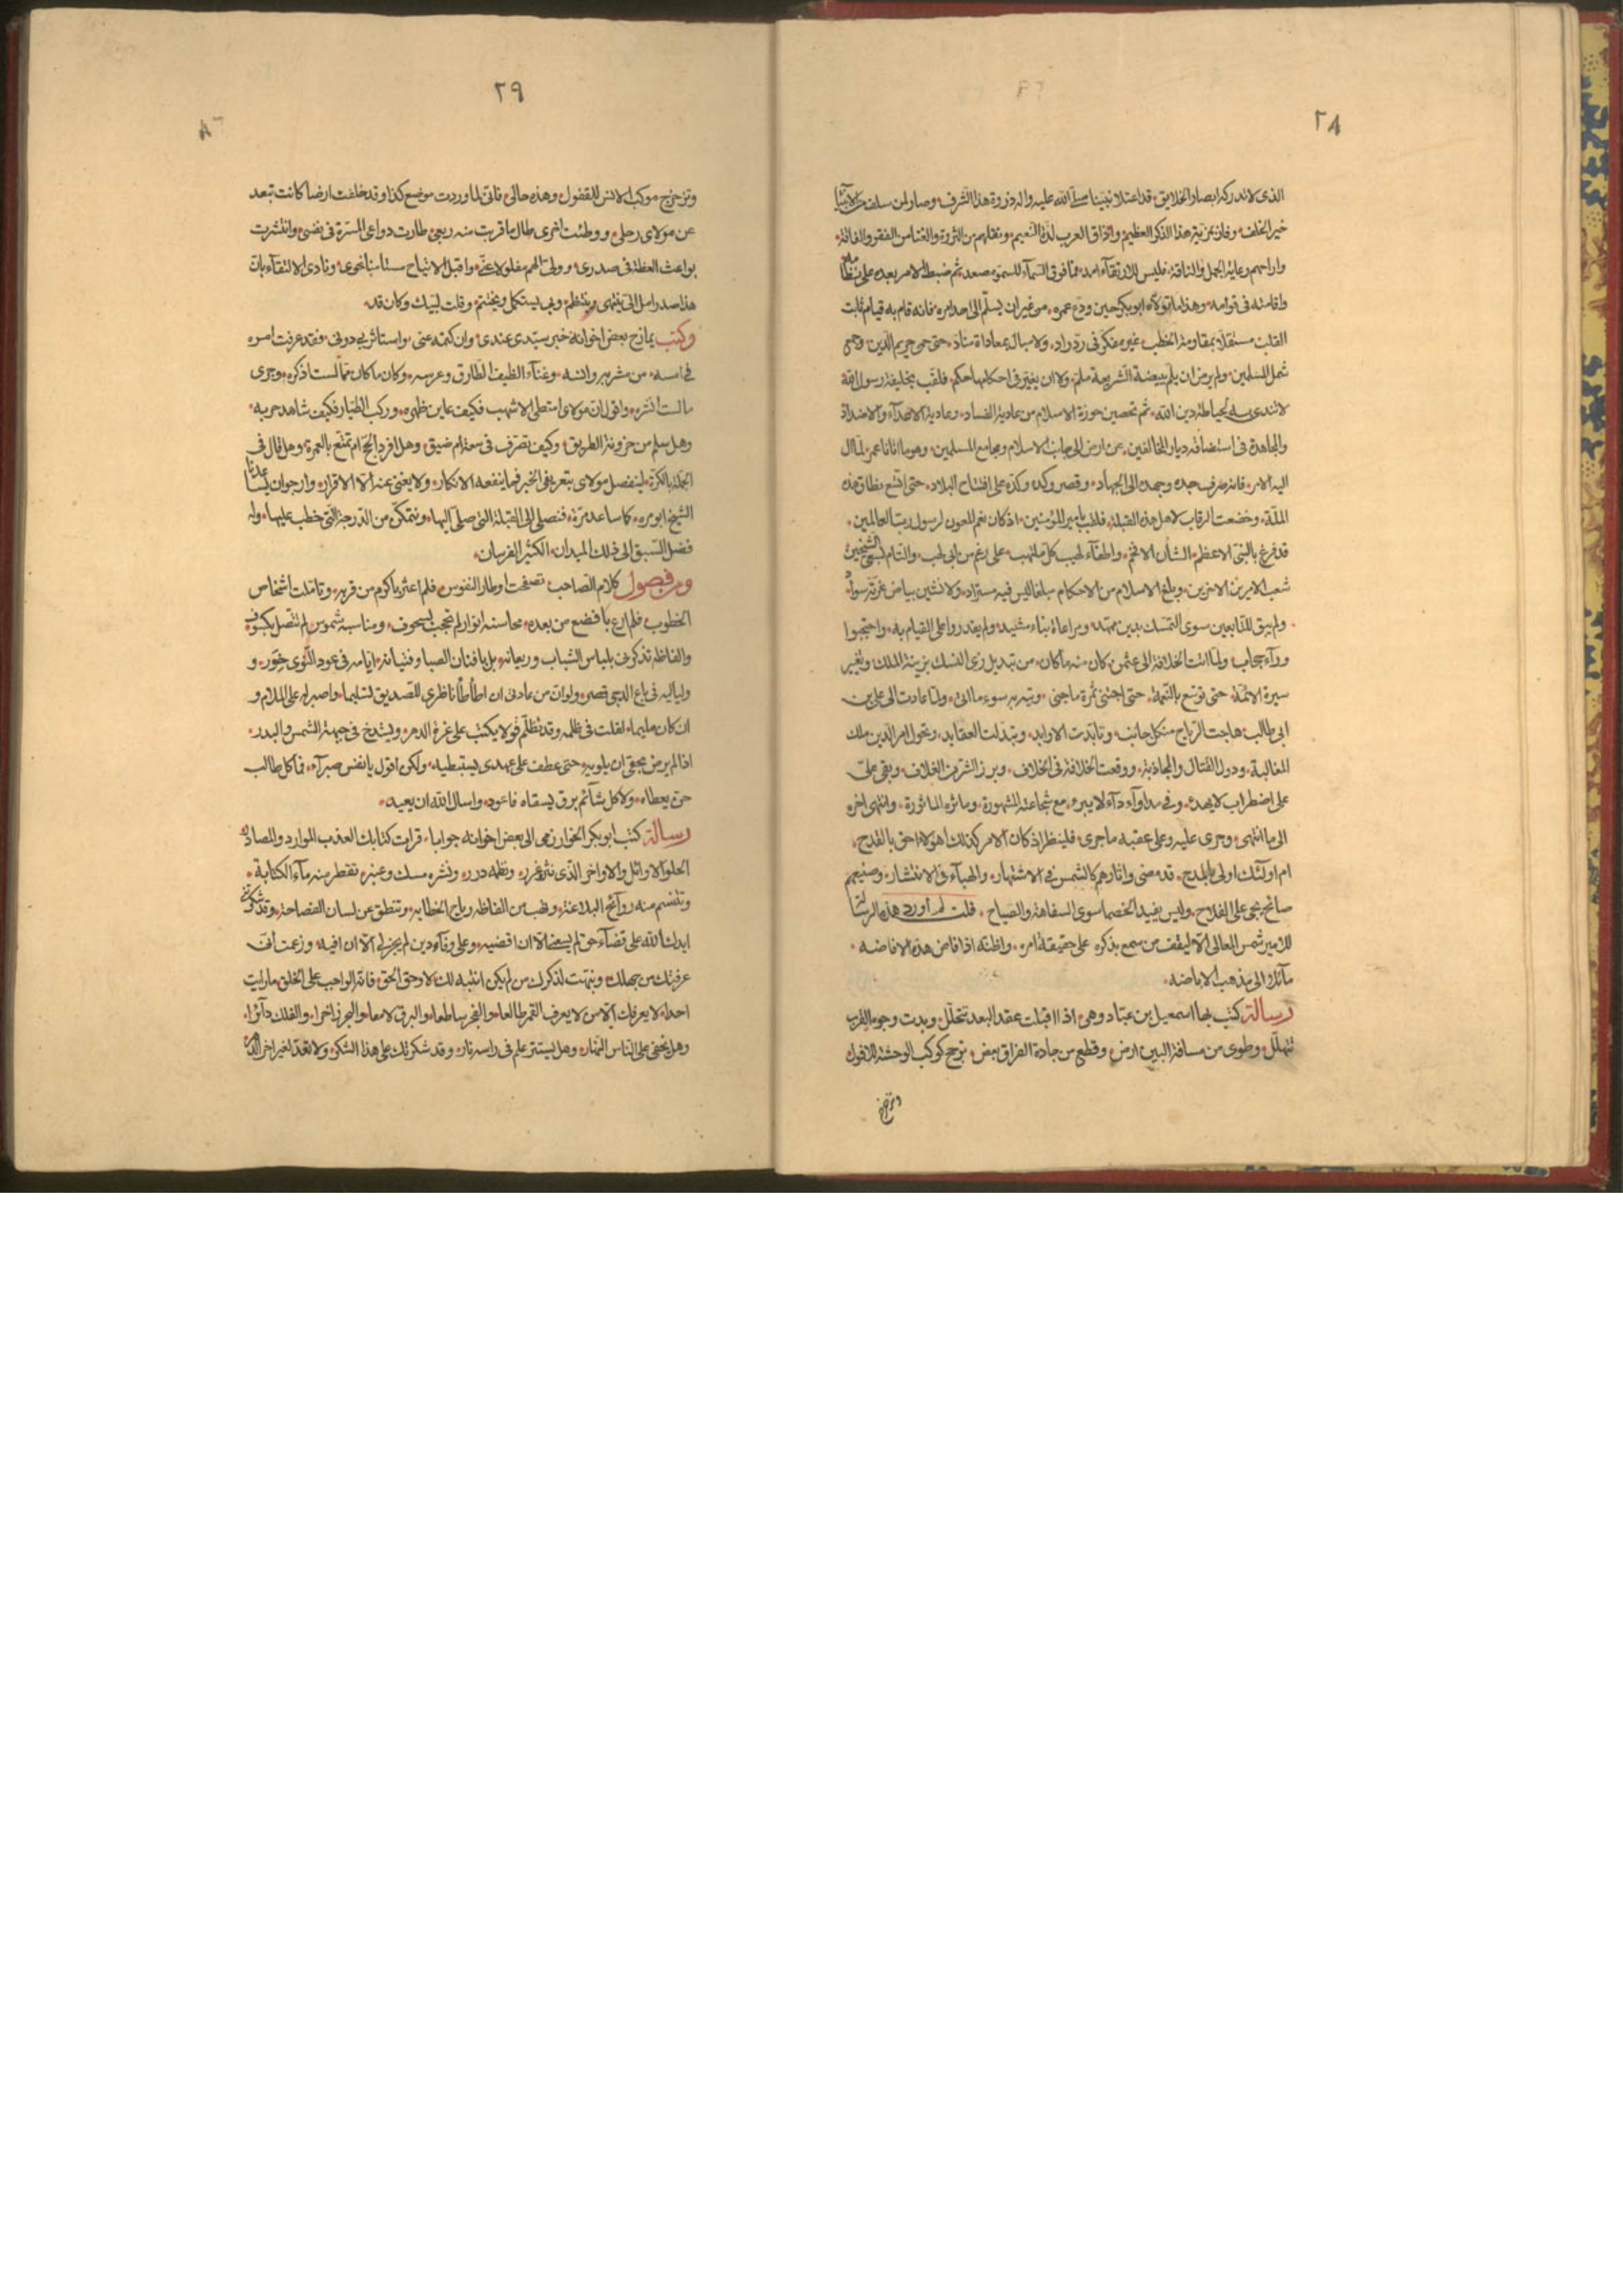 ٢٨
الذى لاتدركه ابصار الخلايق، قد اعتلا نبينا صلى الله عليه واله ذروة هذا الشرف، وصار لمن سلف من الانبيا
خير الخلف، وفاز بمزية هذا الذكر العظيم، واذاق العرب لذة النعيم، ونقلهم من الثروة والغنا من الفقر والفاقة،
واراحهم رعاية الجمل والناقة، فليس للارتقاء امد، فما فوق السماء للسمو مصعد، ثم ضبط الامر بعده على نظامه
واقامته فى قوامه، وهذا ماتولاه ابو بكر حين ودع عمره، من غير ان يسلم الى احد امره، فانه قام به قيام ثابت
القلب مستقلا بمقاومة الخطب، غير مفكر فى رد راد، ولا مبال بمعاداة مناد، حتى حمى حريم الدين، وحمى
شمل المسلمين، ولم يرض ان يلم ببيضة الشريعة ملم، ولا ان يغير فى احكامها حكم، فلقب بخليفة رسول الله
لحياطته دين الله، ثم تحصين حوزة الاسلام من عادية الفساد، وعادية الاعداء والاضداد
والمجاهدة فى استضافة ديار المخالفين، من ارض الى جانب الاسلام ومجامع المسلمين، وهو ما اتانا عمر، لما ال
اليه الامر، فانه صرف جده وجهده الى الجهاد، وقصر وكده وكده على افتتاح البلاد، حتى اتسع نطاق هذه
الملة، وخضعت الرقاب لاهل هذه القبلة، فلقب بامير المؤمنين، اذ كان نعم العون لرسول رب العالمين،
قد فرغ بالنبى الاعظم، الشان الافخم، واطفاء لهيب كل ملتهب، على رغم من ابى لهب، والتام بسعى الشيخين
شعب الامرين الاخرين، وبلغ الاسلام من الاحكام مبلغا ليس فيه مستزاد، ولا تشين بياض غرته سواد،
ولم يبق للتابعين سوى التمسك بدين ممهد، ومراعاة بناء مشيد، ولم يقدروا على القيام به، واحتجبوا
وراء حجاب، ولما اتت الخلافة الى عثمن كان منه ماكان، من تبديل زى النسك بزينة الملك وتغيير
سيرة الائمة، حتى توسع بالنعمة، حتى اجتنى ثمرة ماجنى، سوء ما اتى، ولما عادت الى على بن
ابى طالب هاجت الرياح من كل جانب، وتابدت الاوابد، وتبدلت العقايد، وتحول امر الدين ملك
المغالبة، ودول القتال والمجاذبة، ووقعت الخلافة فى الخلاف، وبرز الشر من الغلاف، وبقى على
على اضطراب لايهدء، وفى مداواة داء لايبرء، مع شجاعته المشهورة، ومآثره الماثورة، وانتهى اخره
الى ما انتهى، وجرى عليه وعلى عقبه ماجرى، فلينظر اذ كان الامر كذلك اهؤلاء احق بالقدح،
ام اولئك اولى بالمدح، قد مضى واثارهم كالشمس فى الاشتهار، والهباء فى الانتشار، وصنيعهم
صائح بحى على الفلاح، وليس يفيد الخصما سوى السفاهة والصياح، قلت لم اورد هذه الرسالة
للامير شمس المعالى الا ليقف من سمع بذكره على حقيقة امره، واظنه اذا افاض هذه الافاضه،
مائلا الى مذهب الاباضه،
رسالة كتب بها اسمعيل بن عباد وهى، اذا اقبلت عقد البعد تتحلل، وبدت وجوه القرب
تتهلل، وطوى من مسافة البين ارض، وقطع من جادة الفراق بعض، نزح كوكب الوحشة للافول
وتزحزح
٢٩
وتزحزح موكب الانس للقفول، وهذه حالى، فانى لما وردت موضع كذا وقد خلفت ارضا كانت تبعد
عن مولاى رحلى، ووطئت اخرى طال ماقربت منه ربعى، طارت دواعى المسرة فى نفسى، وانتشرت
بواعث العظة فى صدرى، وولى الهم مغلولا عنى، واقبل الارتياح مستانسا نحوى، ونادى الالتقاء بان
هذا صدر امل الى ينتهى وينتظم، وبى يستكمل ويختتم، وقلت لبيك وكان قد،
وكتب يمازح بعض اخوانه خبر سيدى عندى، وان كتمه عنى، واستاثر به دونى، فقد عرفت امره
فى امسه، من مشربه وانسه، وغناء الظيف الطارق وعرسه، وكان ماكان مما لست اذكره، وجرى
مالست انشره، واقول ان مولاى امتطى الاشهب فكيف عاين ظهره، وركب الطيار فكيف شاهد جريه،
وهل سلم من حزونة الطريق، وكيف تصرف فى سعة ام ضيق، وهل افرد الحج ام تمتع بالعمرة، وهل قال فى
الحملة بالكرة، ليتفضل مولاى بتعريفى الخبر فما ينفعه الانكار، ولا يغنى عنه الا الاقرار، وارجو ان يساعدنا
الشيخ ابو مره، كما ساعد مرة، فنصلى الى القبلة التى صلى اليها، ونتمكن من الدرجة التى خطب عليها، وله
فضل السبق الى ذلك الميدان، الكثير الفرسان،
ومن فصول كلام الصاحب تصفحت اوطار النفوس، فلم اعثر باكرم من قربه، وتاملت اشخاص
الخطوب فلم ارع بافضع من بعده، محاسنه انوار لم تحجب بسجوف، ومناسبه شموس لم تتصل بكسوف،
والفاظه تذكرنى بلباس الشباب وريعانه، بل بافنان الصبا وفتيانه، ايامه فى عود النوى خور، و
ولياليه فى باع الدجى قصر، ولو ان من عادتى ان اطأطأ ناظرى للصديق تسليما، واصبر له على الملام و
ان كان مليما، لقلت فى ظلمه وقد تظلم قولا يكتب على غرة الدهر، ويشدخ فى جبهة الشمس والبدر،
اذا لم يرض بحقى ان يلويه، حتى عطف على عهدى يستبطيه، ولكن اقول يا نفس صبراء، فما كل طالب
حق يعطاه، ولا كل شائم برق يسقاه، فاعود، واسال الله ان يعيد،
رسالة كتب ابو بكر الخوارزمى الى بعض اخوانه جوابا، قرات كتابك العذب الموارد والمصادر
الحلو الاوائل والاواخر الذى نثره غرر، ونظمه درر، ونشره مسك وعنبر، تقطر منه ماء الكتابة،
وتتنسم منه روائح البلاغة، وتهب من الفاظه رياح الخطابه، وتنطق عن لسان الفصاحة، وقد شكرتنى
ايدك الله على قضاء حق لم يسعنى الا ان اقضيه، وعلى وفاء دين لم يجز لى الا ان افيه، وزعمت انى
عرفتك من جهلك، ونبهت لذكرك من لم يكن انتبه لك، لا وحق الحق، فانه الواجب على الخلق، مارايت
احدا لايعرفك، الا من لايعرف القمر طالعا، والفجر ساطعا، والبرق لامعا، والبحر زاخرا، والفلك دائرا،
وهل يخفى على الناس النهار، وهل يستتر علم فى راسه نار، وقد شكرتك على هذا الشكر، ولا تعد لغير اخر الدهر